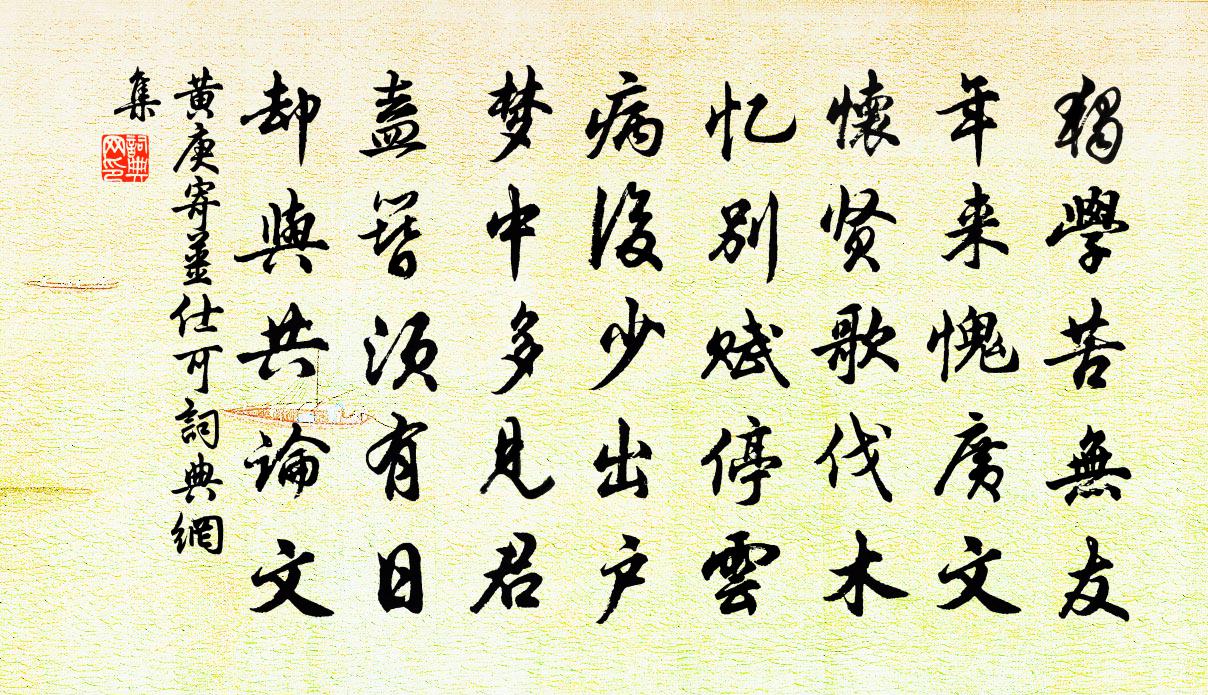 獨學苦無友
年来愧廣文
懷贤歌伐木
忆别赋停雲
病後少出户
梦中多見君
盍簪須有日
却與共論文
黄庚寄薑仕可詞典網
集
詞典
网印